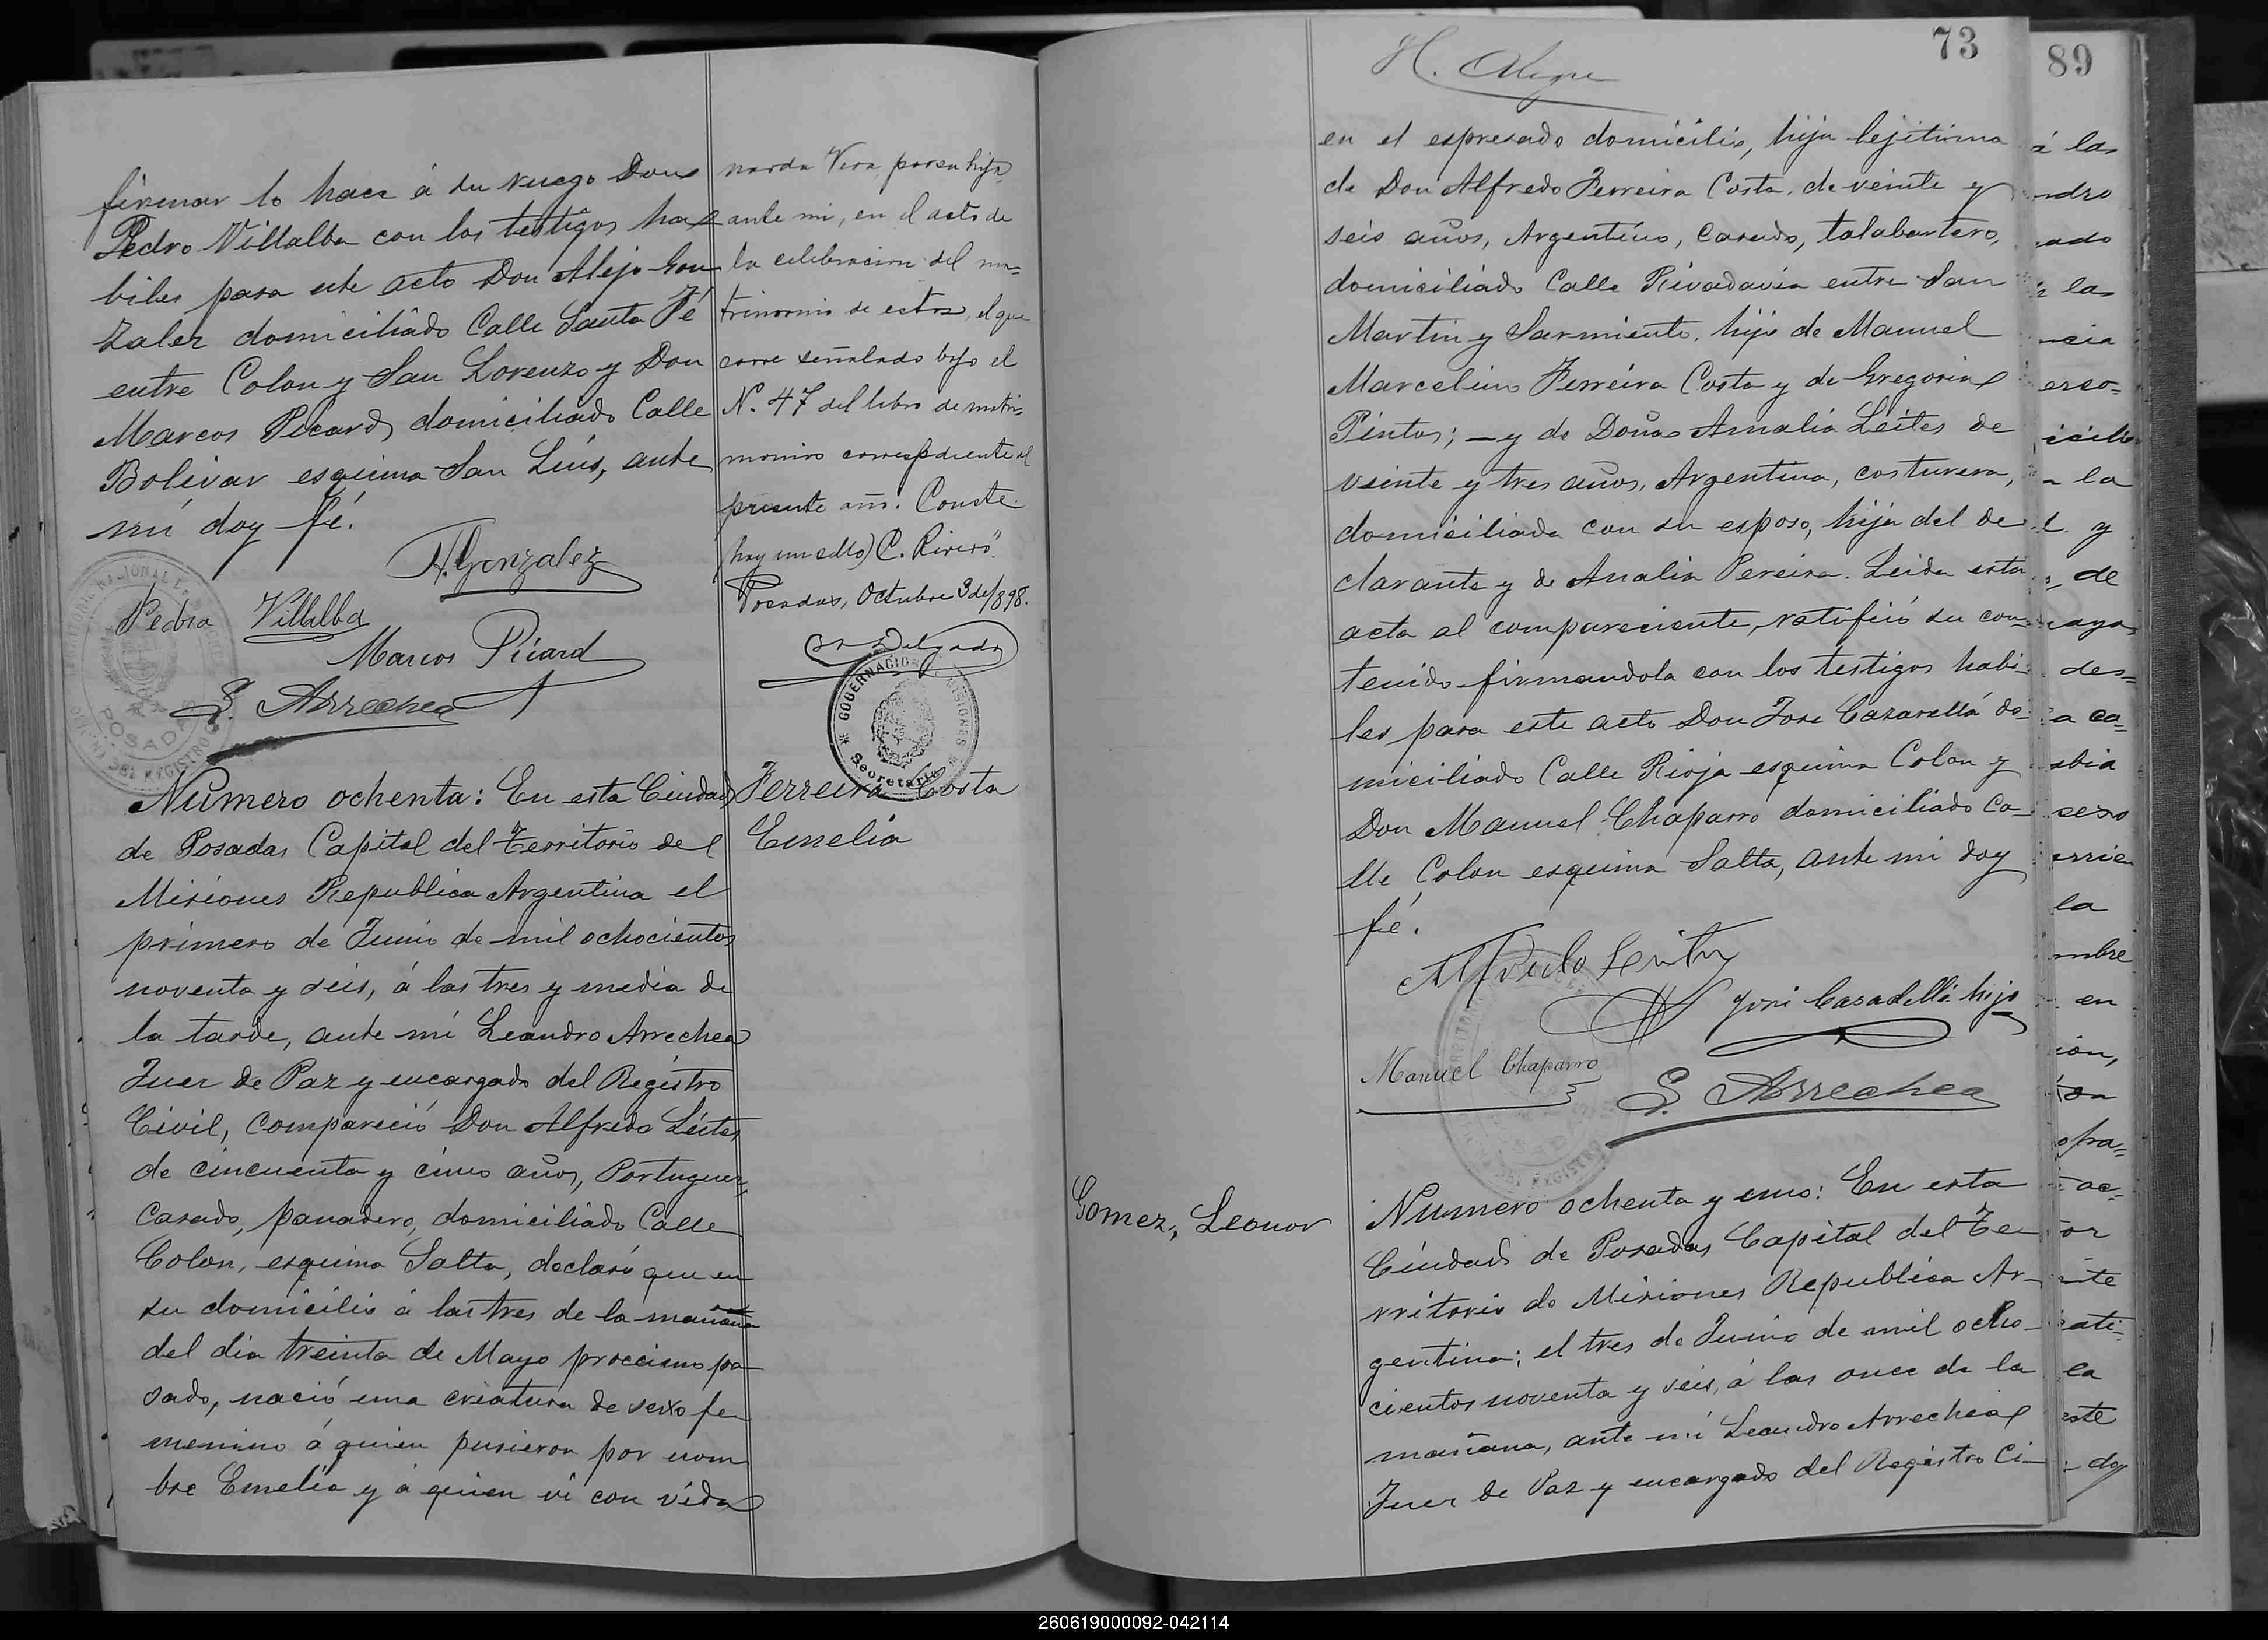 firmar lo hace á su ruego Don
Pedro Villalba con los testigos ha
biles para este acto Don Alejo Gon
zalez domiciliado Calle Santa Fé
entre Colon y San Lorenzo y Don
Marcos Picard, domiciliado Calle
Bolivar esquina San Luis, ante
mi doy fé.
A. Gonzalez
Pedro Villalba
Marcos Picard
L. Arrechea
narda Vera para su hijo
ante mi, en el acto de
la celebracion del ma=
trimonio de estos, el que
corre señalado bajo el
N. 47 del libro de matri=
monios correspdiente al
presente año. Conste.
(hay un sello) C. Rivero"
Posadas, Octubre 3 de/898.
Delgado
GOBERNACION MISIONES
Secretaria
Numero ochenta: En esta Ciudad
de Posadas Capital del Territorio de
Misiones Republica Argentina el
primero de Junio de mil ochocientos
noventa y seis, á las tres y media de
la tarde, ante mi Leandro Arrechea
Juez de Paz y encargado del Registro
Civil, compareció Don Alfredo Leites
de cincuenta y cinco años, Portuguez,
Casado, panadero, domiciliado Calle
Colon, esquina Salta, declaró que en
su domicilio á las tres de la mañana
del dia treinta de Mayo proccimo pa
sado, nació una criatura de sexo fe
menino á quien pusieron por nom
bre Emelia y á quien vi con vida
Ferreira Costa
Emelia
H. Alegre
73
en el espresado domicilio, hija lejitima
de Don Alfredo Ferreira Costa, de veinte y
seis años, Argentino, Casado, talabartero,
domiciliado Calle Rivadavia entre San
Martin y Sarmiento, hijo de Manuel
Marcelino Ferreira Costa y de Gregoria
Pintos; — y de Doña Amalia Leites de
veinte y tres años, Argentina, costurera,
domiciliada con su esposo, hija del de
clarante y de Analia Pereira. Leida esta
acta al compareciente, ratificó su con=
tenido firmandola con los testigos habi=
les para este acto Don Jose Cazarellá do=
miciliado Calle Rioja esquina Colon y
Don Manuel Chaparro domiciliado Ca=
lle Colon esquina Salta, ante mi doy
fé.
Alfredo Leites
José Casadellá hijo
Manuel Chaparro
L. Arrechea
Gomez, Leonor
Numero ochenta y uno: En esta
Ciudad de Posadas Capital del Te
rritorio de Misiones Republica Ar-
gentina; el tres de Junio de mil ocho-
cientos noventa y seis, á las once de la
mañana, ante mi Leandro Arrechea
Juez de Paz y encargado del Registro Ci-
89
á las
ndro
ado
las
icilio
la
y
de
des=
sexo
la
mbre
en
ion,
or
la
este
doy
260619000092-042114